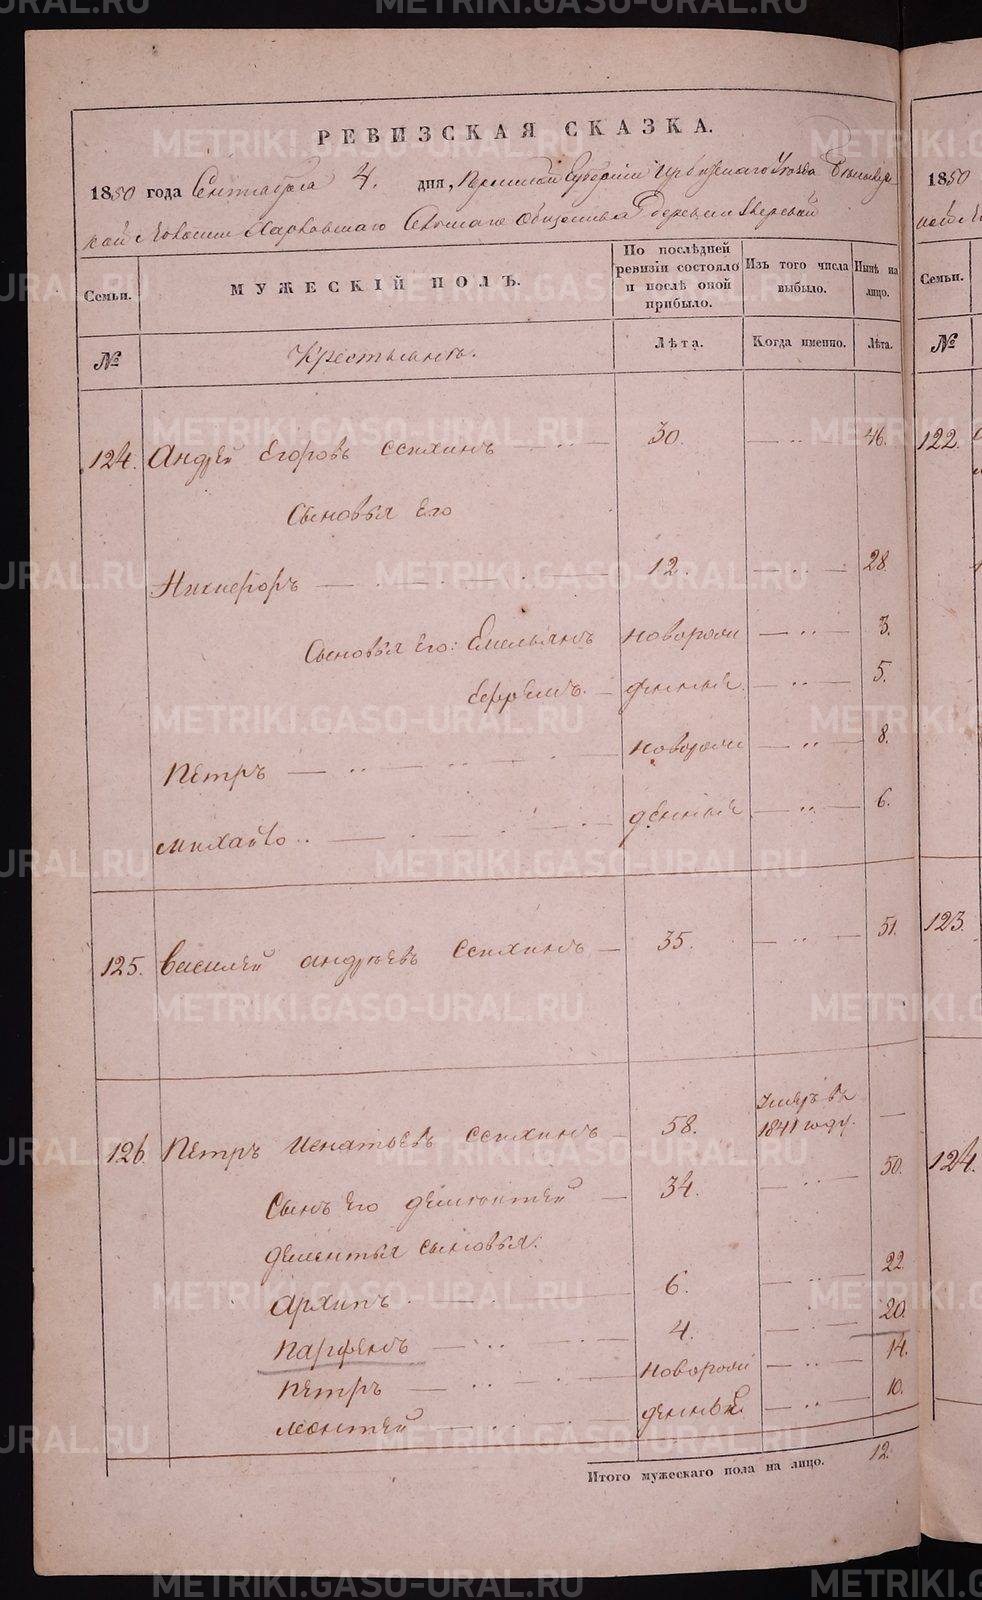 METRIKI.GASO-URAL.RU
РЕВИЗСКАЯ СКАЗКА.
1850 года Сентября 4. дня, Пермской Губернии Ирбитскаго Уезда
кой Волости Харловскаго Сельскаго Общества Деревни
Семьи. МУЖЕСКІЙ ПОЛЪ. По послѣдней ревизіи состояло и послѣ оной прибыло. Изъ того числа выбыло. Нынѣ на лицо.
№ Крестьянъ. Лѣта. Когда именно. Лѣта.
124. Андрей Егоровъ Ссыхинъ 30. 46.
Сыновья его
Никифоръ 12. 28.
Сыновья его: Емельянъ новорож 3.
Ефремъ. денные 5.
Петръ новорож 8.
Михайло денные 6.
125. Василей Андреевъ Ссыхинъ 35. 51.
126. Петръ Игнатьевъ Ссыхинъ 58. Умеръ въ 1841 году.
Сынъ его Дементей 34. 50.
Дементья сыновья:
Архипъ 6. 22.
Парфенъ 4. 20.
Петръ новорож 14.
Монтей денные 10.
Итого мужескаго пола на лицо. 12.
1850
Семьи.
№
122.
123.
124.